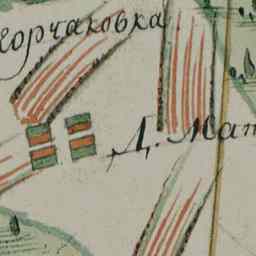 Корчаковка
Д. Мат